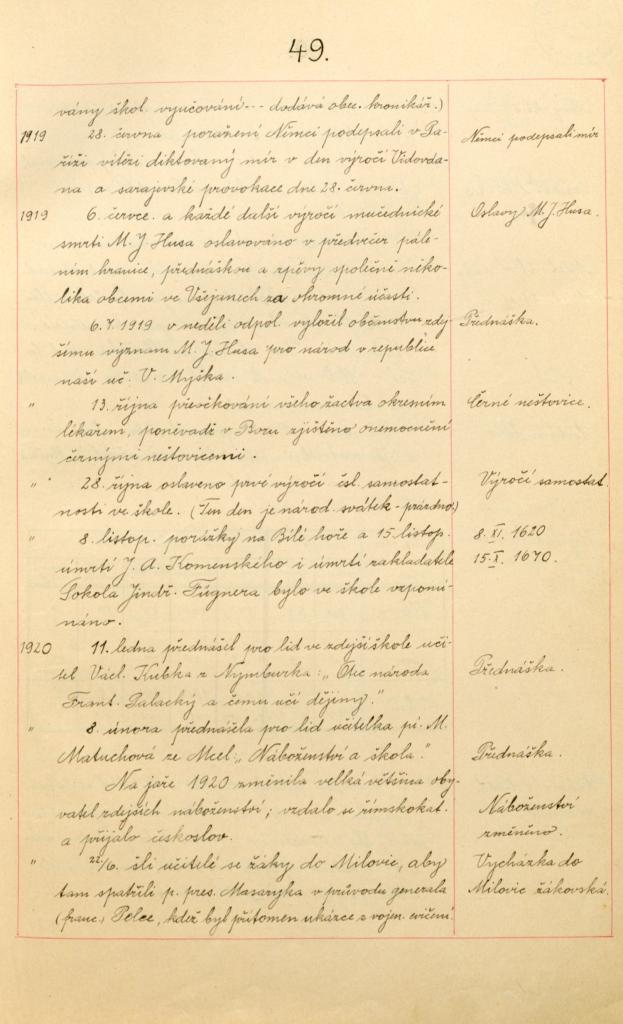 49.
vány škol. vyučování -- dodává obec. kronikář.)
1919 28. června poražení Němci podepsali v Pa- Němci podepsali mír
říži vítězi diktovaný mír v den výročí Vidovda-
na a sarajevské provokace dne 28. června.
1919 6. července a každé další výročí mučednické Oslavy M. J. Husa.
smrti M. J. Husa oslavováno v předvečer pále-
ním hranice, přednáškou a zpěvy společně něko-
lika obcemi ve Všejanech za ohromné účasti.
6. 7. 1919 v neděli odpol. vyložil občanstvu zdej- Přednáška.
šímu význam M. J. Husa pro národ v republice
naší uč. V. Myška.
" 13. října přeočkování všeho žactva okresním Černé neštovice.
lékařem, poněvadž v Boru zjištěno onemocnění
černými neštovicemi.
" 28. října oslaveno prvé výročí čsl. samostat- Výročí samostat.
nosti ve škole. (Ten den je národ. svátek - prázdno.)
" 8. listop. porážky na Bílé hoře a 15. listop. 8. XI. 1620
úmrtí J. A. Komenského i úmrtí zakladatele 15. X. 1670.
Sokola Jindř. Fügnera bylo ve škole vzpomí-
náno.
1920 11. ledna přednášel pro lid ve zdejší škole uči-
tel Václ. Kubka z Nymburka: „Otec národa Přednáška.
Frant. Palacký a čemu učí dějiny."
" 8. února přednášela pro lid učitelka pí. M.
Matuchová ze Mcel: „Náboženství a škola." Přednáška.
Na jaře 1920 změnila velká většina oby-
vatel zdejších náboženství; vzdalo se římskokat. Náboženství
a přijalo českoslov. změněno.
" 22/6. šli učitelé se žáky do Milovic, aby Vycházka do
tam spatřili p. pres. Masaryka v průvodu generala Milovic žákovská.
(franc.) Pelce, kdež byl přítomen ukázce z vojen. cvičení.